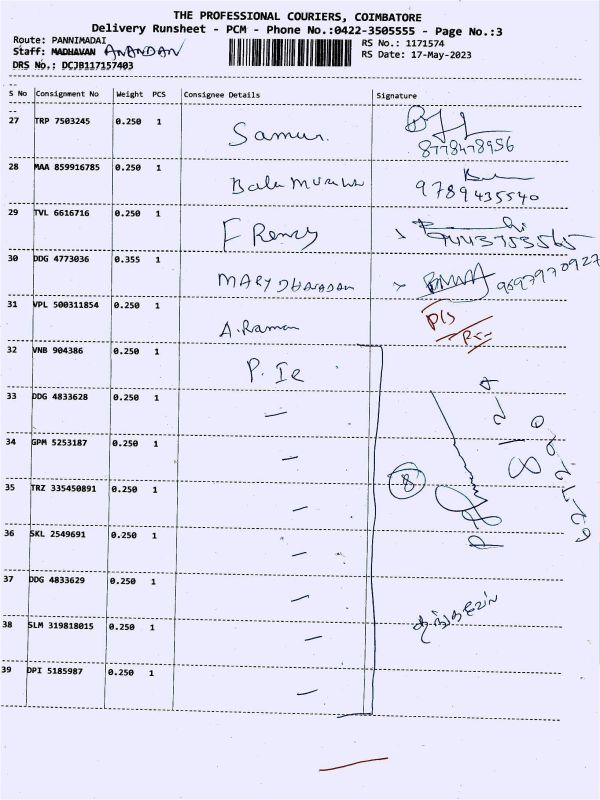 THE PROFESSIONAL COURIERS, COIMBATORE
Delivery Runsheet - PCM - Phone No.:0422-3505555 - Page No.:3
Route: PANNIMADAI RS No.: 1171574
Staff: MADHAVAN ANANDAN RS Date: 17-May-2023
DRS No.: DCJB117157403
S No Consignment No Weight PCS Consignee Details Signature
27 TRP 7503245 0.250 1 Samun.
8778478956
28 MAA 859916785 0.250 1 Bala
9789435540
29 TVL 6616716 0.250 1 F Remy
9443753565
30 DDG 4773036 0.355 1 MARY 9697970927
31 VPL 500311854 0.250 1 A.Raman
32 VNB 904386 0.250 1 P. Ie
33 DDG 4833628 0.250 1 —
34 GPM 5253187 0.250 1 —
35 TRZ 335450891 0.250 1 — 8
36 SKL 2549691 0.250 1 —
37 DDG 4833629 0.250 1 —
38 SLM 319818015 0.250 1 —
39 DPI 5185987 0.250 1 —